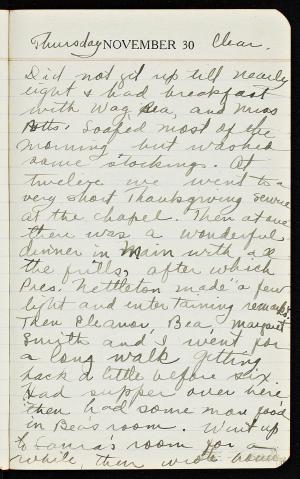 Thursday NOVEMBER 30 Clear.
Did not get up till nearly
eight & had breakfast
with Wag, Bea, and Miss
Potts. Loafed most of the
morning but washed
some stockings. At
twelve we went to a
very short Thanksgiving service
at the chapel. Then at one
there was a wonderful
dinner in Main with all
the frills, after which
Pres. Nettleton made a few
light and entertaining remarks.
Then Eleanor, Bea, Margaret
Smith and I went for
a long walk getting
back a little before six.
Had supper over here
then had some more food
in Bea's room. Went up
to Laura's room for a
while, then wrote home.